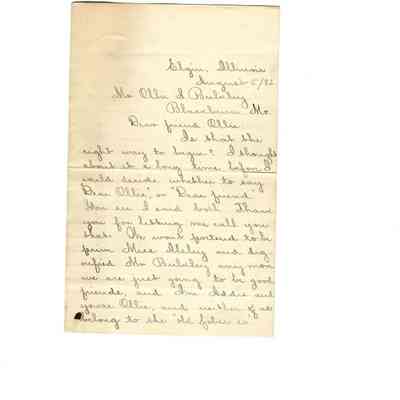 Elgin, Illinois
August 5/92
Mr Ollie S Bulsley
Blackburn Mo.
Dear friend Ollie
Is that the
right way to begin? I thought
about it a long time before I
could decide whether to say
"Dear Ollie," or "Dear friend"
You see I said both. Thank
you for letting me call you
that. We wont pretend to be
prim Miss and dig
nified Mr Bulsley any more
we are just going to be good
friends, and I'm Addie and
you're Ollie, and neither of us
belong to the